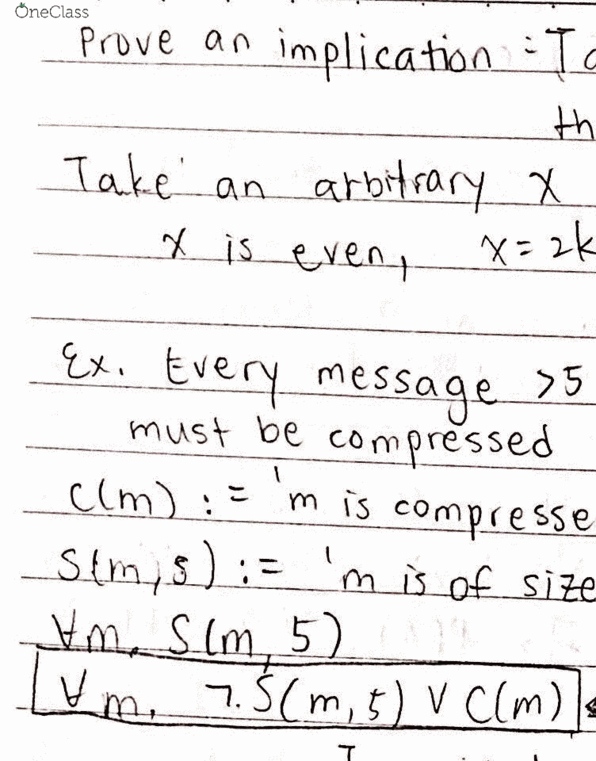 OneClass
Prove an implication :
th
Take an arbitrary x
x is even, x = 2k
Ex. Every message >5
must be compressed
C(m) := 'm is compresse
S(m,s) := 'm is of size
∀m, S(m, 5)
∀m, ¬S(m,5) ∨ C(m)